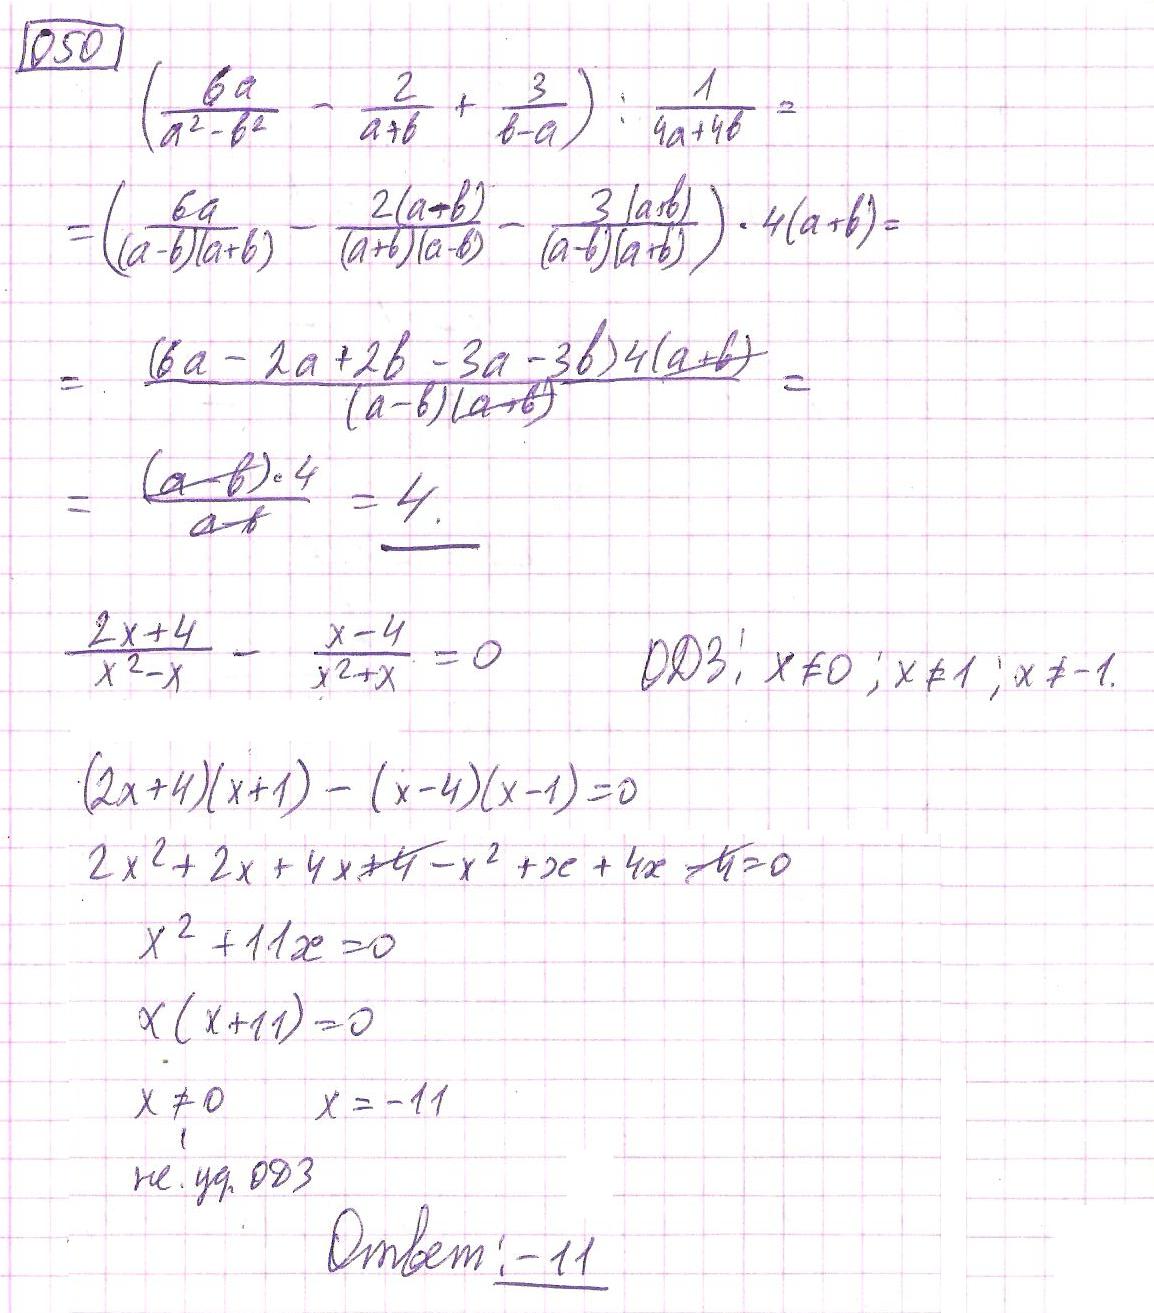 050
(6a/(a²-b²) - 2/(a+b) + 3/(b-a)) : 1/(4a+4b) =
= (6a/((a-b)(a+b)) - 2(a-b)/((a+b)(a-b)) - 3(a+b)/((a-b)(a+b))) · 4(a+b) =
= (6a - 2a + 2b - 3a - 3b)4(a+b)/((a-b)(a+b)) =
= (a-b)·4/(a-b) = 4.
(2x+4)/(x²-x) - (x-4)/(x²+x) = 0 ОДЗ: x≠0; x≠1; x≠-1.
(2x+4)(x+1) - (x-4)(x-1) = 0
2x² + 2x + 4x + 4 - x² + x + 4x - 4 = 0
x² + 11x = 0
x(x+11) = 0
x ≠ 0 x = -11
не. уд. ОДЗ
Ответ: -11